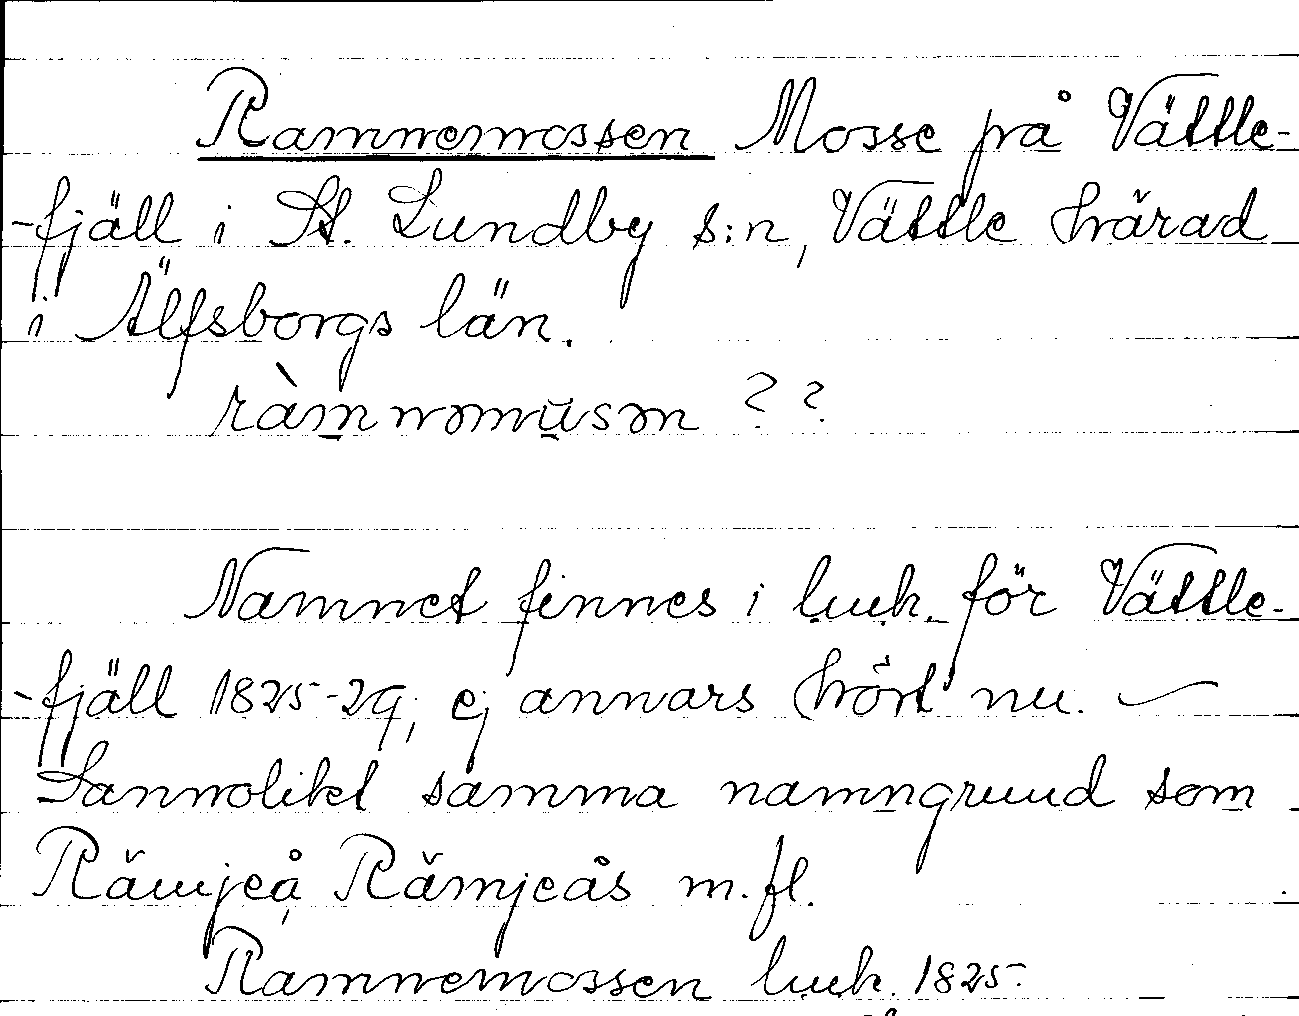 Ramnemossen Mosse på Vättle-
-fjäll i St. Lundby s:n, Vättle härad
i Älfsborgs län.
ràmnəmusən ??
Namnet finnes i luk. för Vättle-
-fjäll 1825-29, ej annars hört nu. —
Sannolikt samma namngrund som
Rämjeå, Rämjeås m.fl.
Ramnemossen luk. 1825.